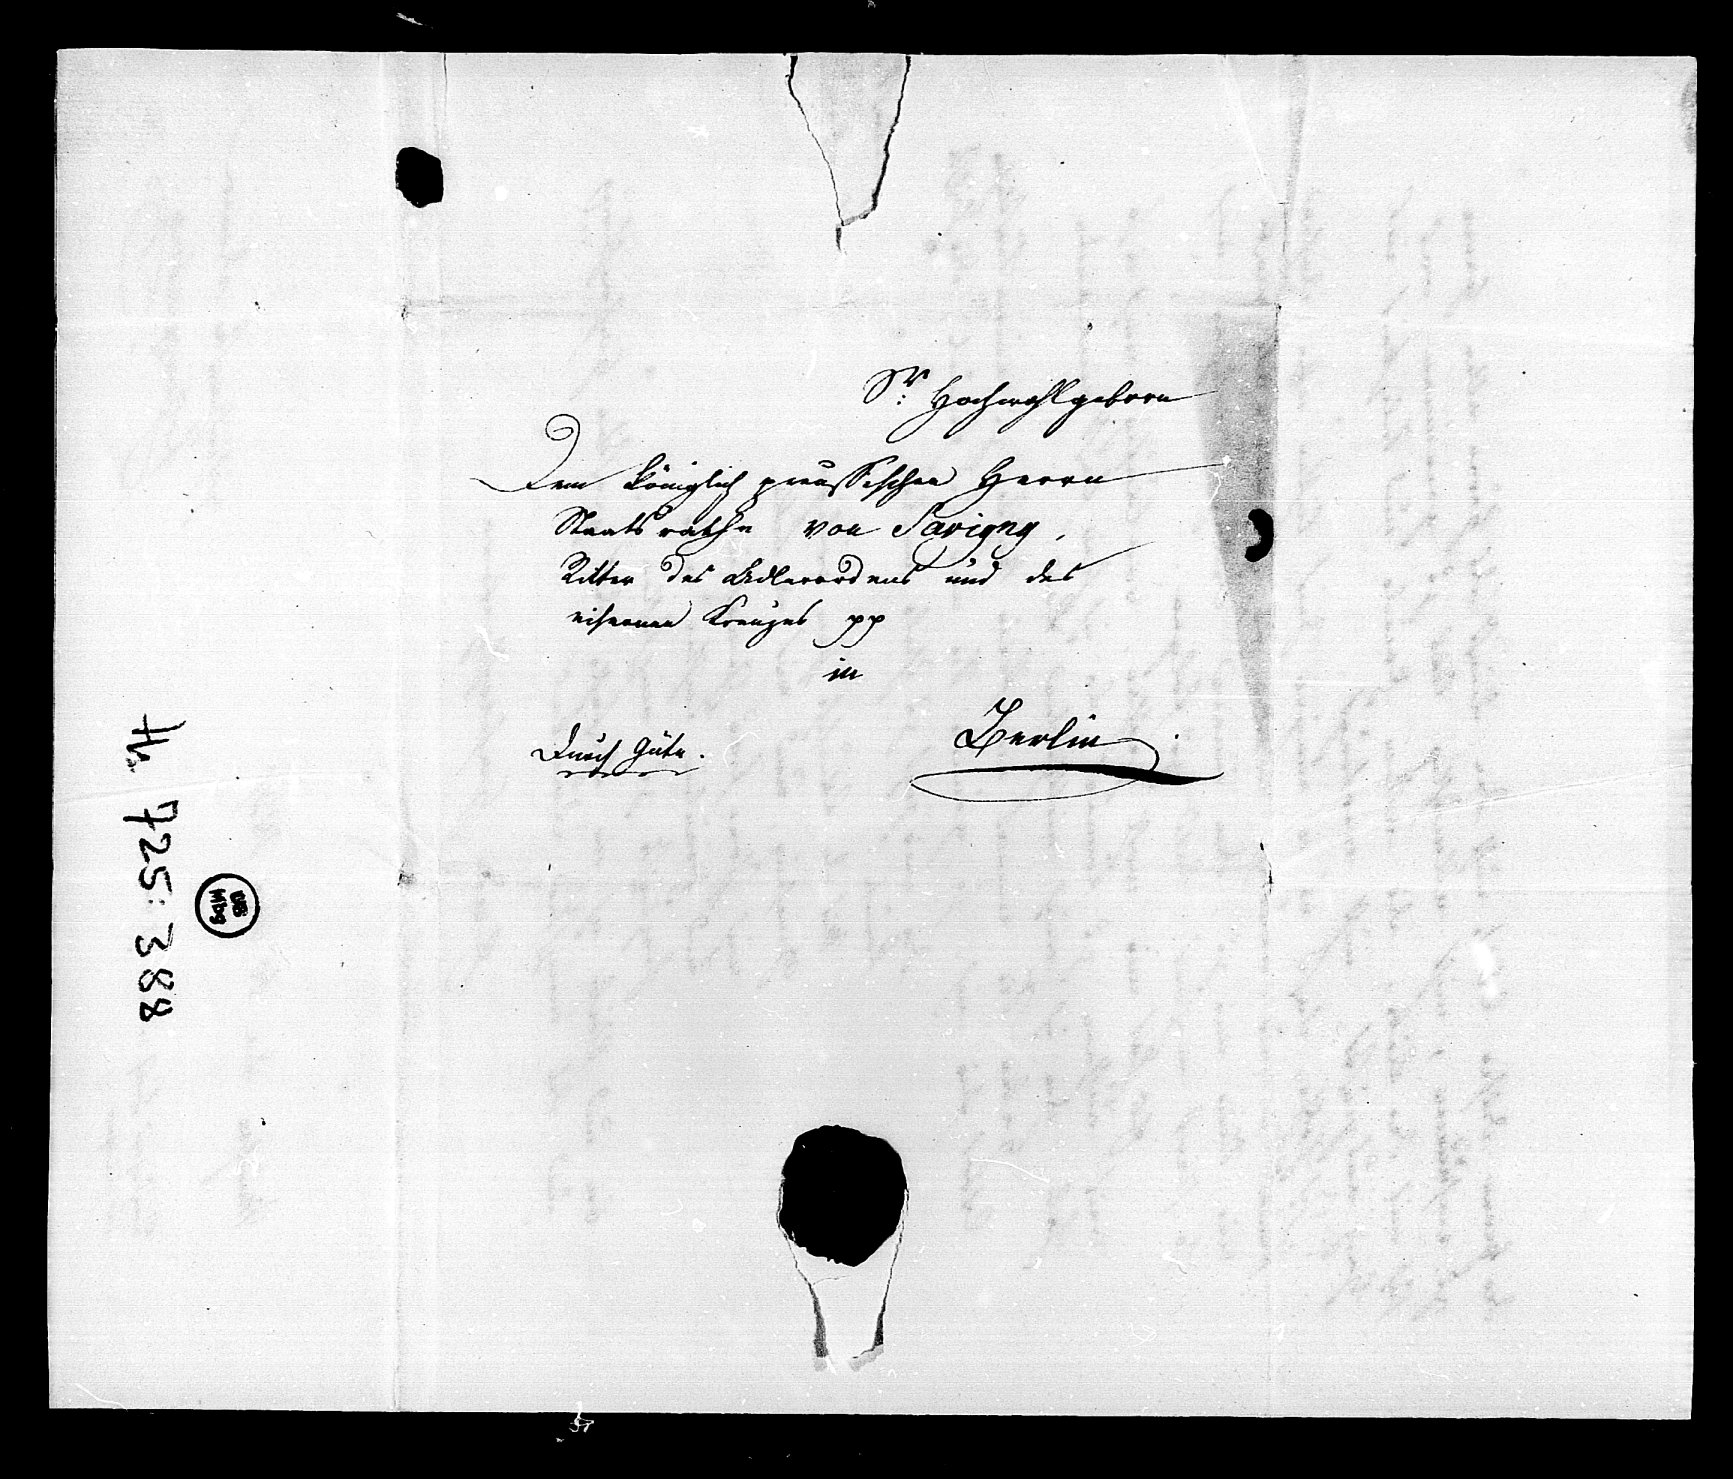 Sr: Hochwohlgeborn
Dem königlich preussischen Herrn
Staatsrathe von Savigny,
Ritter des Adlerordens und des
eisernen Kreuzes pp
in
Berlin
Durch Güte.
Hs. 725:388
UB
Mbg